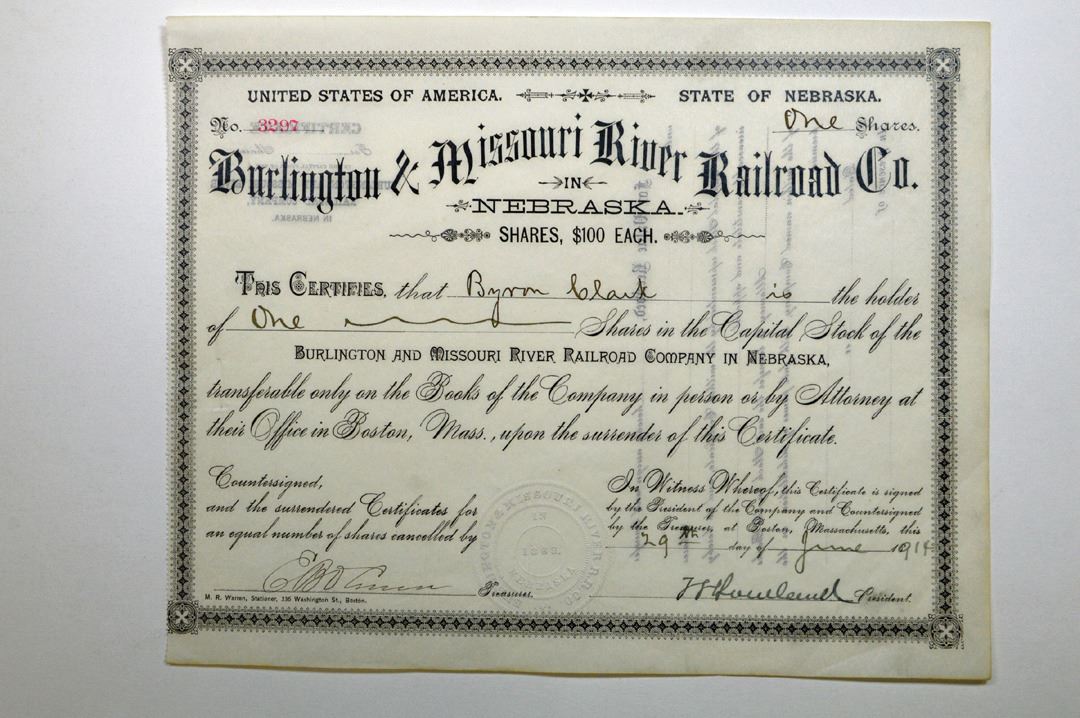 UNITED STATES OF AMERICA. STATE OF NEBRASKA.
No. 3297 One Shares.
Burlington & Missouri River Railroad Co.
IN
NEBRASKA.
SHARES, $100 EACH.
THIS CERTIFIES, that Byron Clark is the holder
of One Shares in the Capital Stock of the
BURLINGTON AND MISSOURI RIVER RAILROAD COMPANY IN NEBRASKA,
transferable only on the Books of the Company in person or by Attorney at
their Office in Boston, Mass., upon the surrender of this Certificate.
Countersigned,
and the surrendered Certificates for
an equal number of shares cancelled by
Treasurer.
M. R. Warren, Stationer, 336 Washington St., Boston.
IN
1869.
NEBRASKA
In Witness Whereof, this Certificate is signed
by the President of the Company and Countersigned
by the Treasurer, at Boston, Massachusetts, this
29th day of June 1914
Howland President.